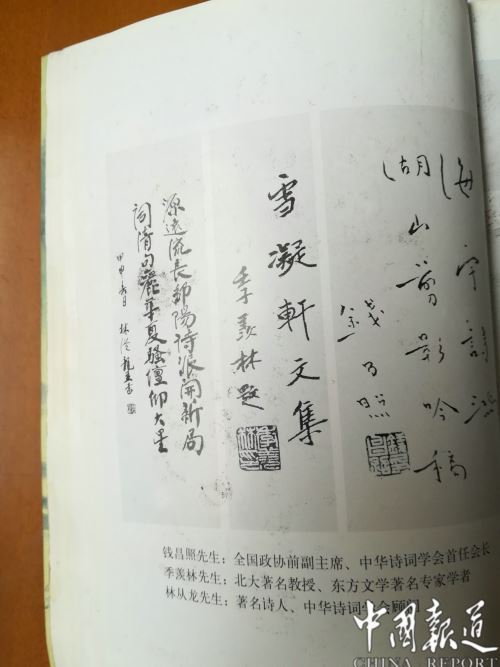 海宇
湖山剪影吟稿
雪凝軒文集
季羡林题
源遠流長鄱陽詩派開新局
词清句麗華夏騷壇仰大星
钱昌照先生：全国政协前副主席、中华诗词学会首任会长
季羡林先生：北大著名教授、东方文学著名专家学者
林从龙先生：著名诗人、中华诗词学会顾问
中國報道
CHINA REPORT